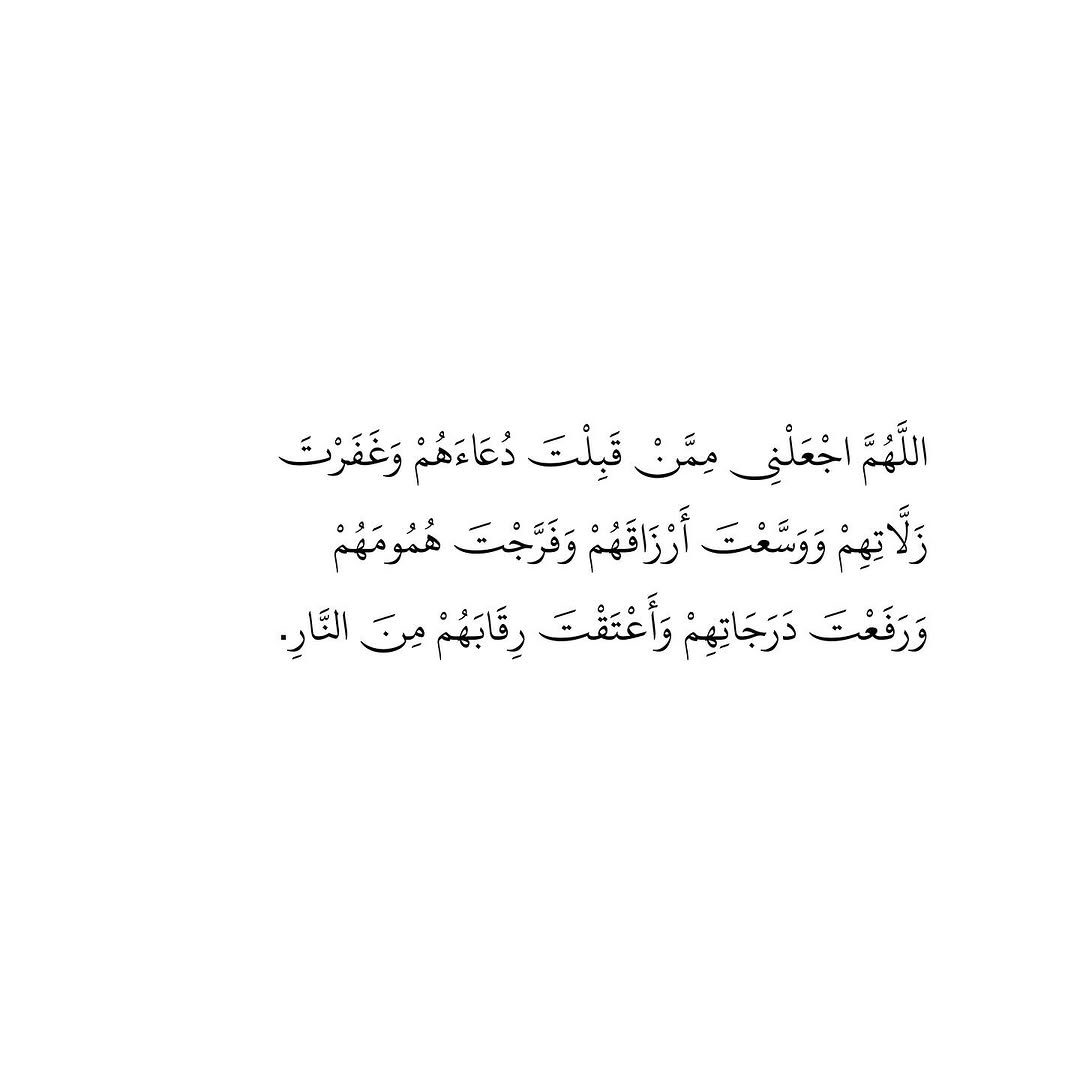 اللَّهُمَّ اجْعَلْنِي مِمَّنْ قَبِلْتَ دُعَاءَهُمْ وَغَفَرْتَ
زَلَّاتِهِمْ وَوَسَّعْتَ أَرْزَاقَهُمْ وَفَرَّجْتَ هُمُومَهُمْ
وَرَفَعْتَ دَرَجَاتِهِمْ وَأَعْتَقْتَ رِقَابَهُمْ مِنَ النَّارِ.